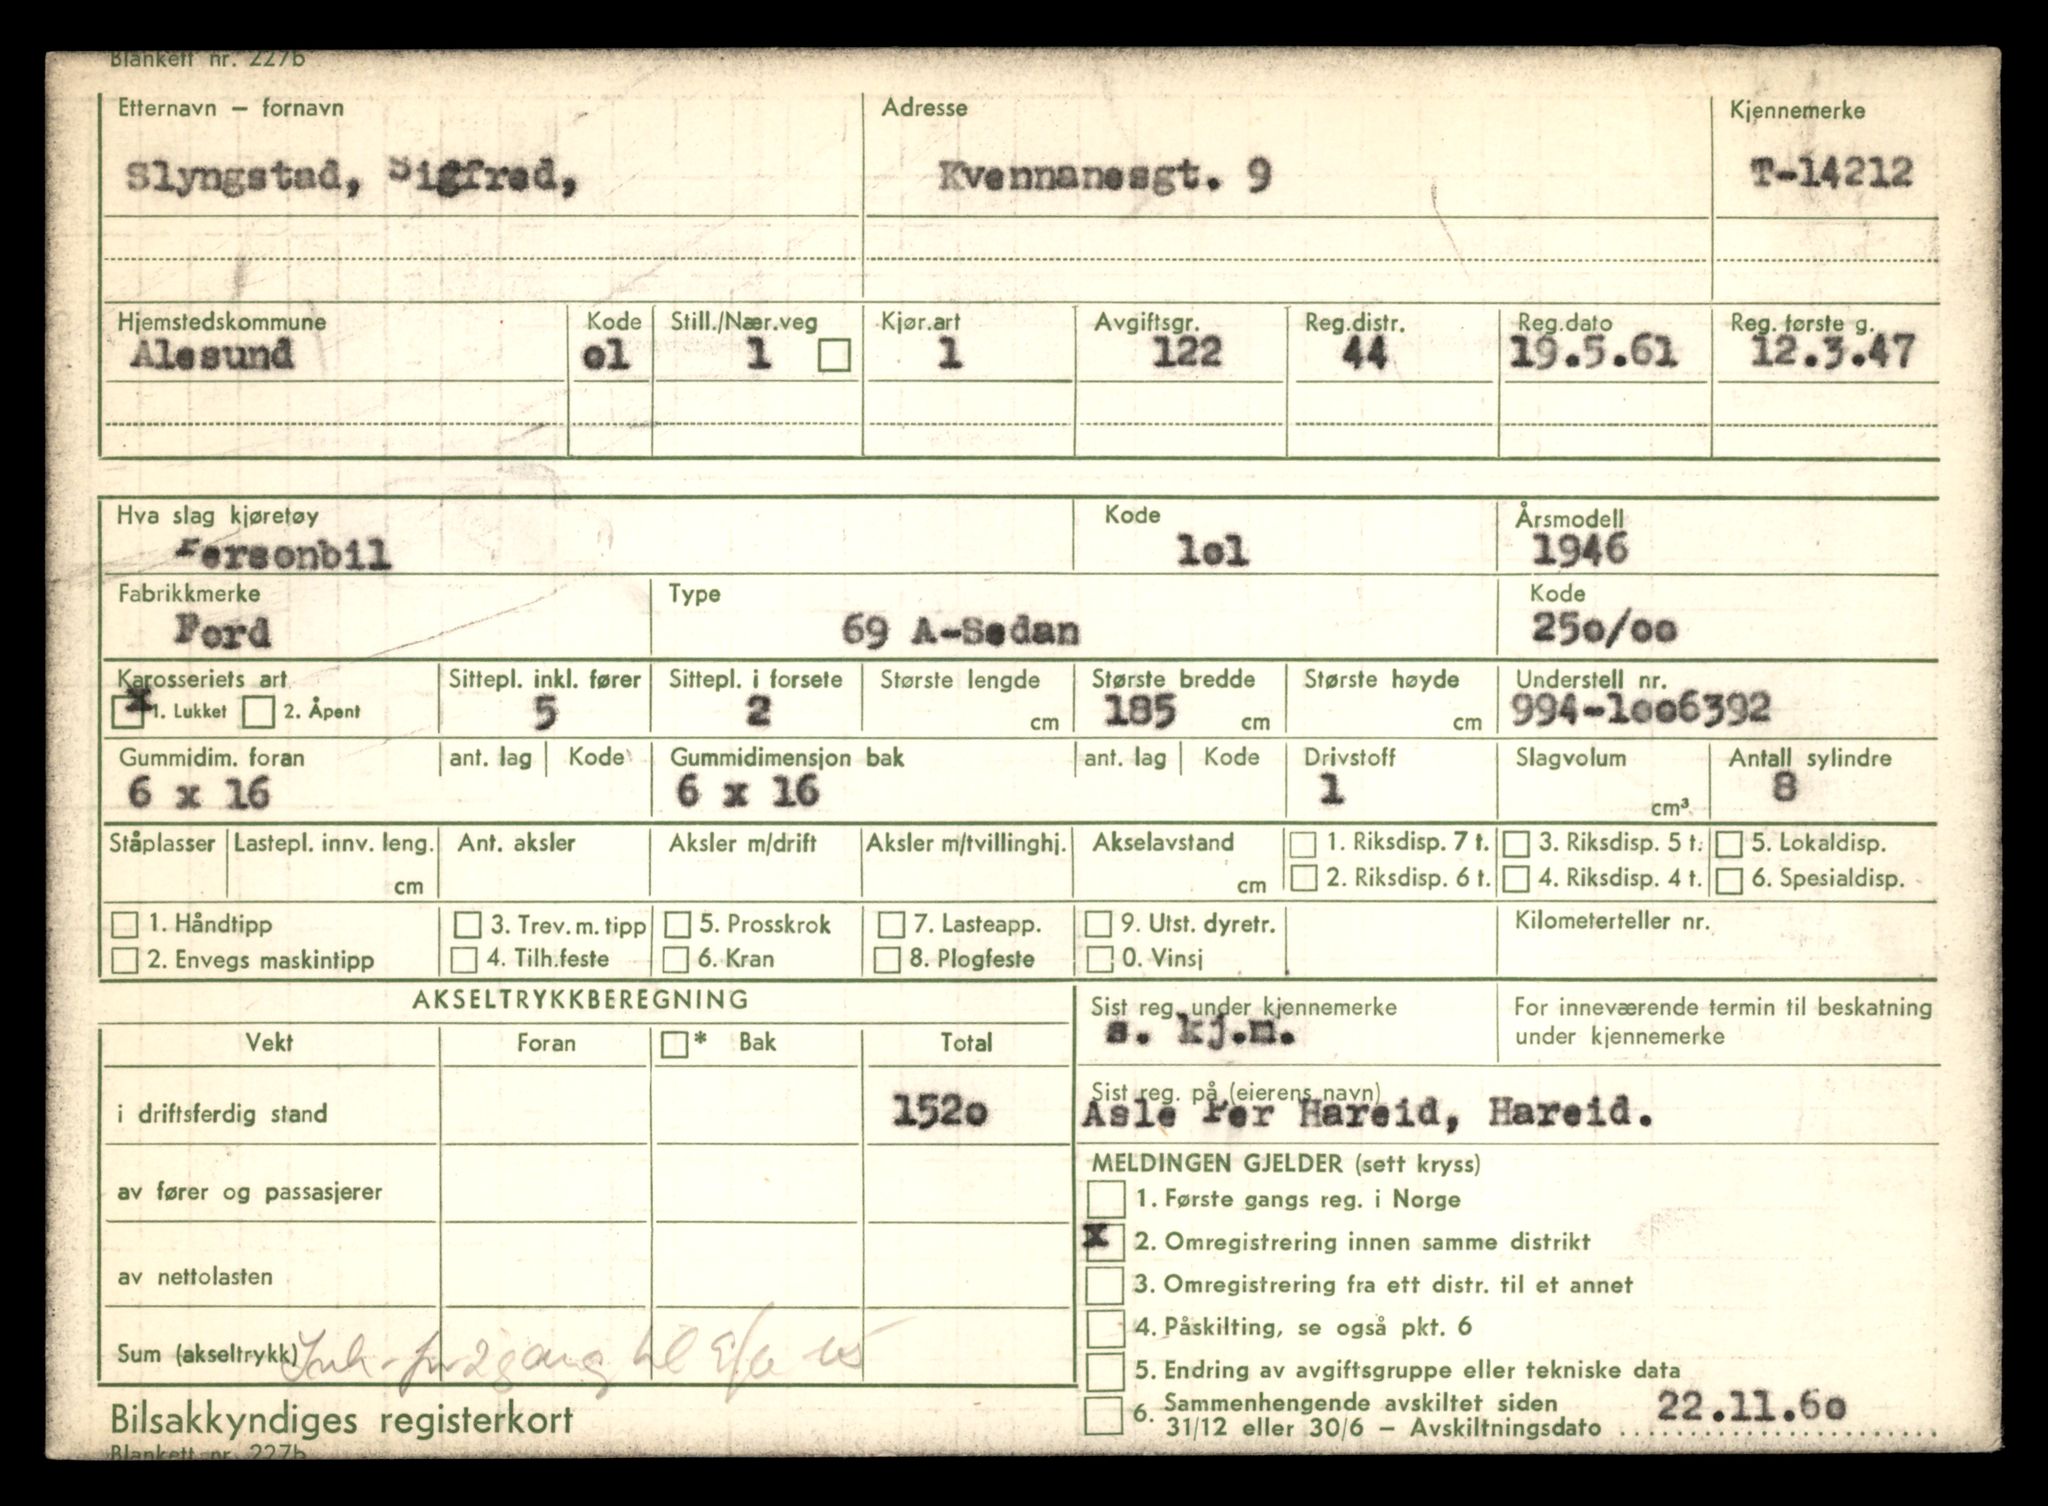 Blankett nr. 227b
Etternavn – fornavn Adresse Kjennemerke
Slyngstad, Sigfred, Kvennanesgt. 9 T-14212
Hjemstedskommune Kode Still./Nær.veg Kjør.art Avgiftsgr. Reg.distr. Reg.dato Reg. første g.
Alesund o1 1 1 122 44 19.5.61 12.3.47
Hva slag kjøretøy Kode Årsmodell
Personbil 1o1 1946
Fabrikkmerke Type Kode
Ford 69 A-Sedan 25o/oo
Karosseriets art Sittepl. inkl. fører Sittepl. i forsete Største lengde Største bredde Største høyde Understell nr.
x 1. Lukket 2. Åpent 5 2 cm 185 cm cm 994-1oo6392
Gummidim. foran ant. lag Kode Gummidimensjon bak ant. lag Kode Drivstoff Slagvolum Antall sylindre
6 x 16 6 x 16 1 cm³ 8
Ståplasser Lastepl. innv. leng. Ant. aksler Aksler m/drift Aksler m/tvillinghj. Akselavstand 1. Riksdisp. 7 t. 3. Riksdisp. 5 t. 5. Lokaldisp.
cm cm 2. Riksdisp. 6 t. 4. Riksdisp. 4 t. 6. Spesialdisp.
1. Håndtipp 3. Trev. m. tipp 5. Prosskrok 7. Lasteapp. 9. Utst. dyretr. Kilometerteller nr.
2. Envegs maskintipp 4. Tilh.feste 6. Kran 8. Plogfeste 0. Vinsj
AKSELTRYKKBEREGNING
Vekt Foran * Bak Total
i driftsferdig stand 152o
av fører og passasjerer
av nettolasten
Sum (akseltrykk)
Sist reg. under kjennemerke For inneværende termin til beskatning
under kjennemerke
s. kj.m.
Sist reg. på (eierens navn)
Asle Per Hareid, Hareid.
MELDINGEN GJELDER (sett kryss)
1. Første gangs reg. i Norge
x 2. Omregistrering innen samme distrikt
3. Omregistrering fra ett distr. til et annet
4. Påskilting, se også pkt. 6
5. Endring av avgiftsgruppe eller tekniske data
6. Sammenhengende avskiltet siden
31/12 eller 30/6 – Avskiltningsdato 22.11.6o
Bilsakkyndiges registerkort
Blankett nr. 227b